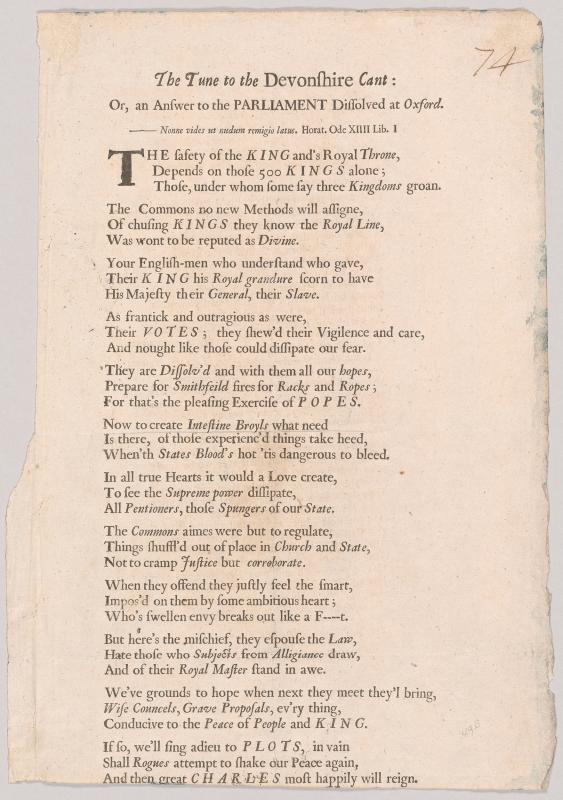 74
The Tune to the Devonſhire Cant:
Or, an Anſwer to the PARLIAMENT Diſſolved at Oxford.
—— Nonne vides ut nudum remigio latus. Horat. Ode XIIII Lib. I
THE ſafety of the KING and's Royal Throne,
Depends on thoſe 500 KINGS alone;
Thoſe, under whom ſome ſay three Kingdoms groan.
The Commons no new Methods will aſſigne,
Of chuſing KINGS they know the Royal Line,
Was wont to be reputed as Divine.
Your Engliſh-men who underſtand who gave,
Their KING his Royal grandure ſcorn to have
His Majeſty their General, their Slave.
As frantick and outragious as were,
Their VOTES; they ſhew'd their Vigilence and care,
And nought like thoſe could diſſipate our fear.
They are Diſſolv'd and with them all our hopes,
Prepare for Smithfeild fires for Racks and Ropes;
For that's the pleaſing Exerciſe of POPES.
Now to create Inteſtine Broyls what need
Is there, of thoſe experienc'd things take heed,
When'th States Blood's hot 'tis dangerous to bleed.
In all true Hearts it would a Love create,
To ſee the Supreme power diſſipate,
All Pentioners, thoſe Spungers of our State.
The Commons aimes were but to regulate,
Things ſhuff'd out of place in Church and State,
Not to cramp Juſtice but corroborate.
When they offend they juſtly feel the ſmart,
Impos'd on them by ſome ambitious heart;
Who's ſwellen envy breaks out like a F----t.
But here's the miſchief, they eſpouſe the Law,
Hate thoſe who Subjects from Alligiance draw,
And of their Royal Maſter ſtand in awe.
We've grounds to hope when next they meet they'l bring,
Wiſe Councels, Grave Propoſals, ev'ry thing,
Conducive to the Peace of People and KING.
If ſo, we'll ſing adieu to PLOTS, in vain
Shall Rogues attempt to ſhake our Peace again,
And then great CHARLES moſt happily will reign.